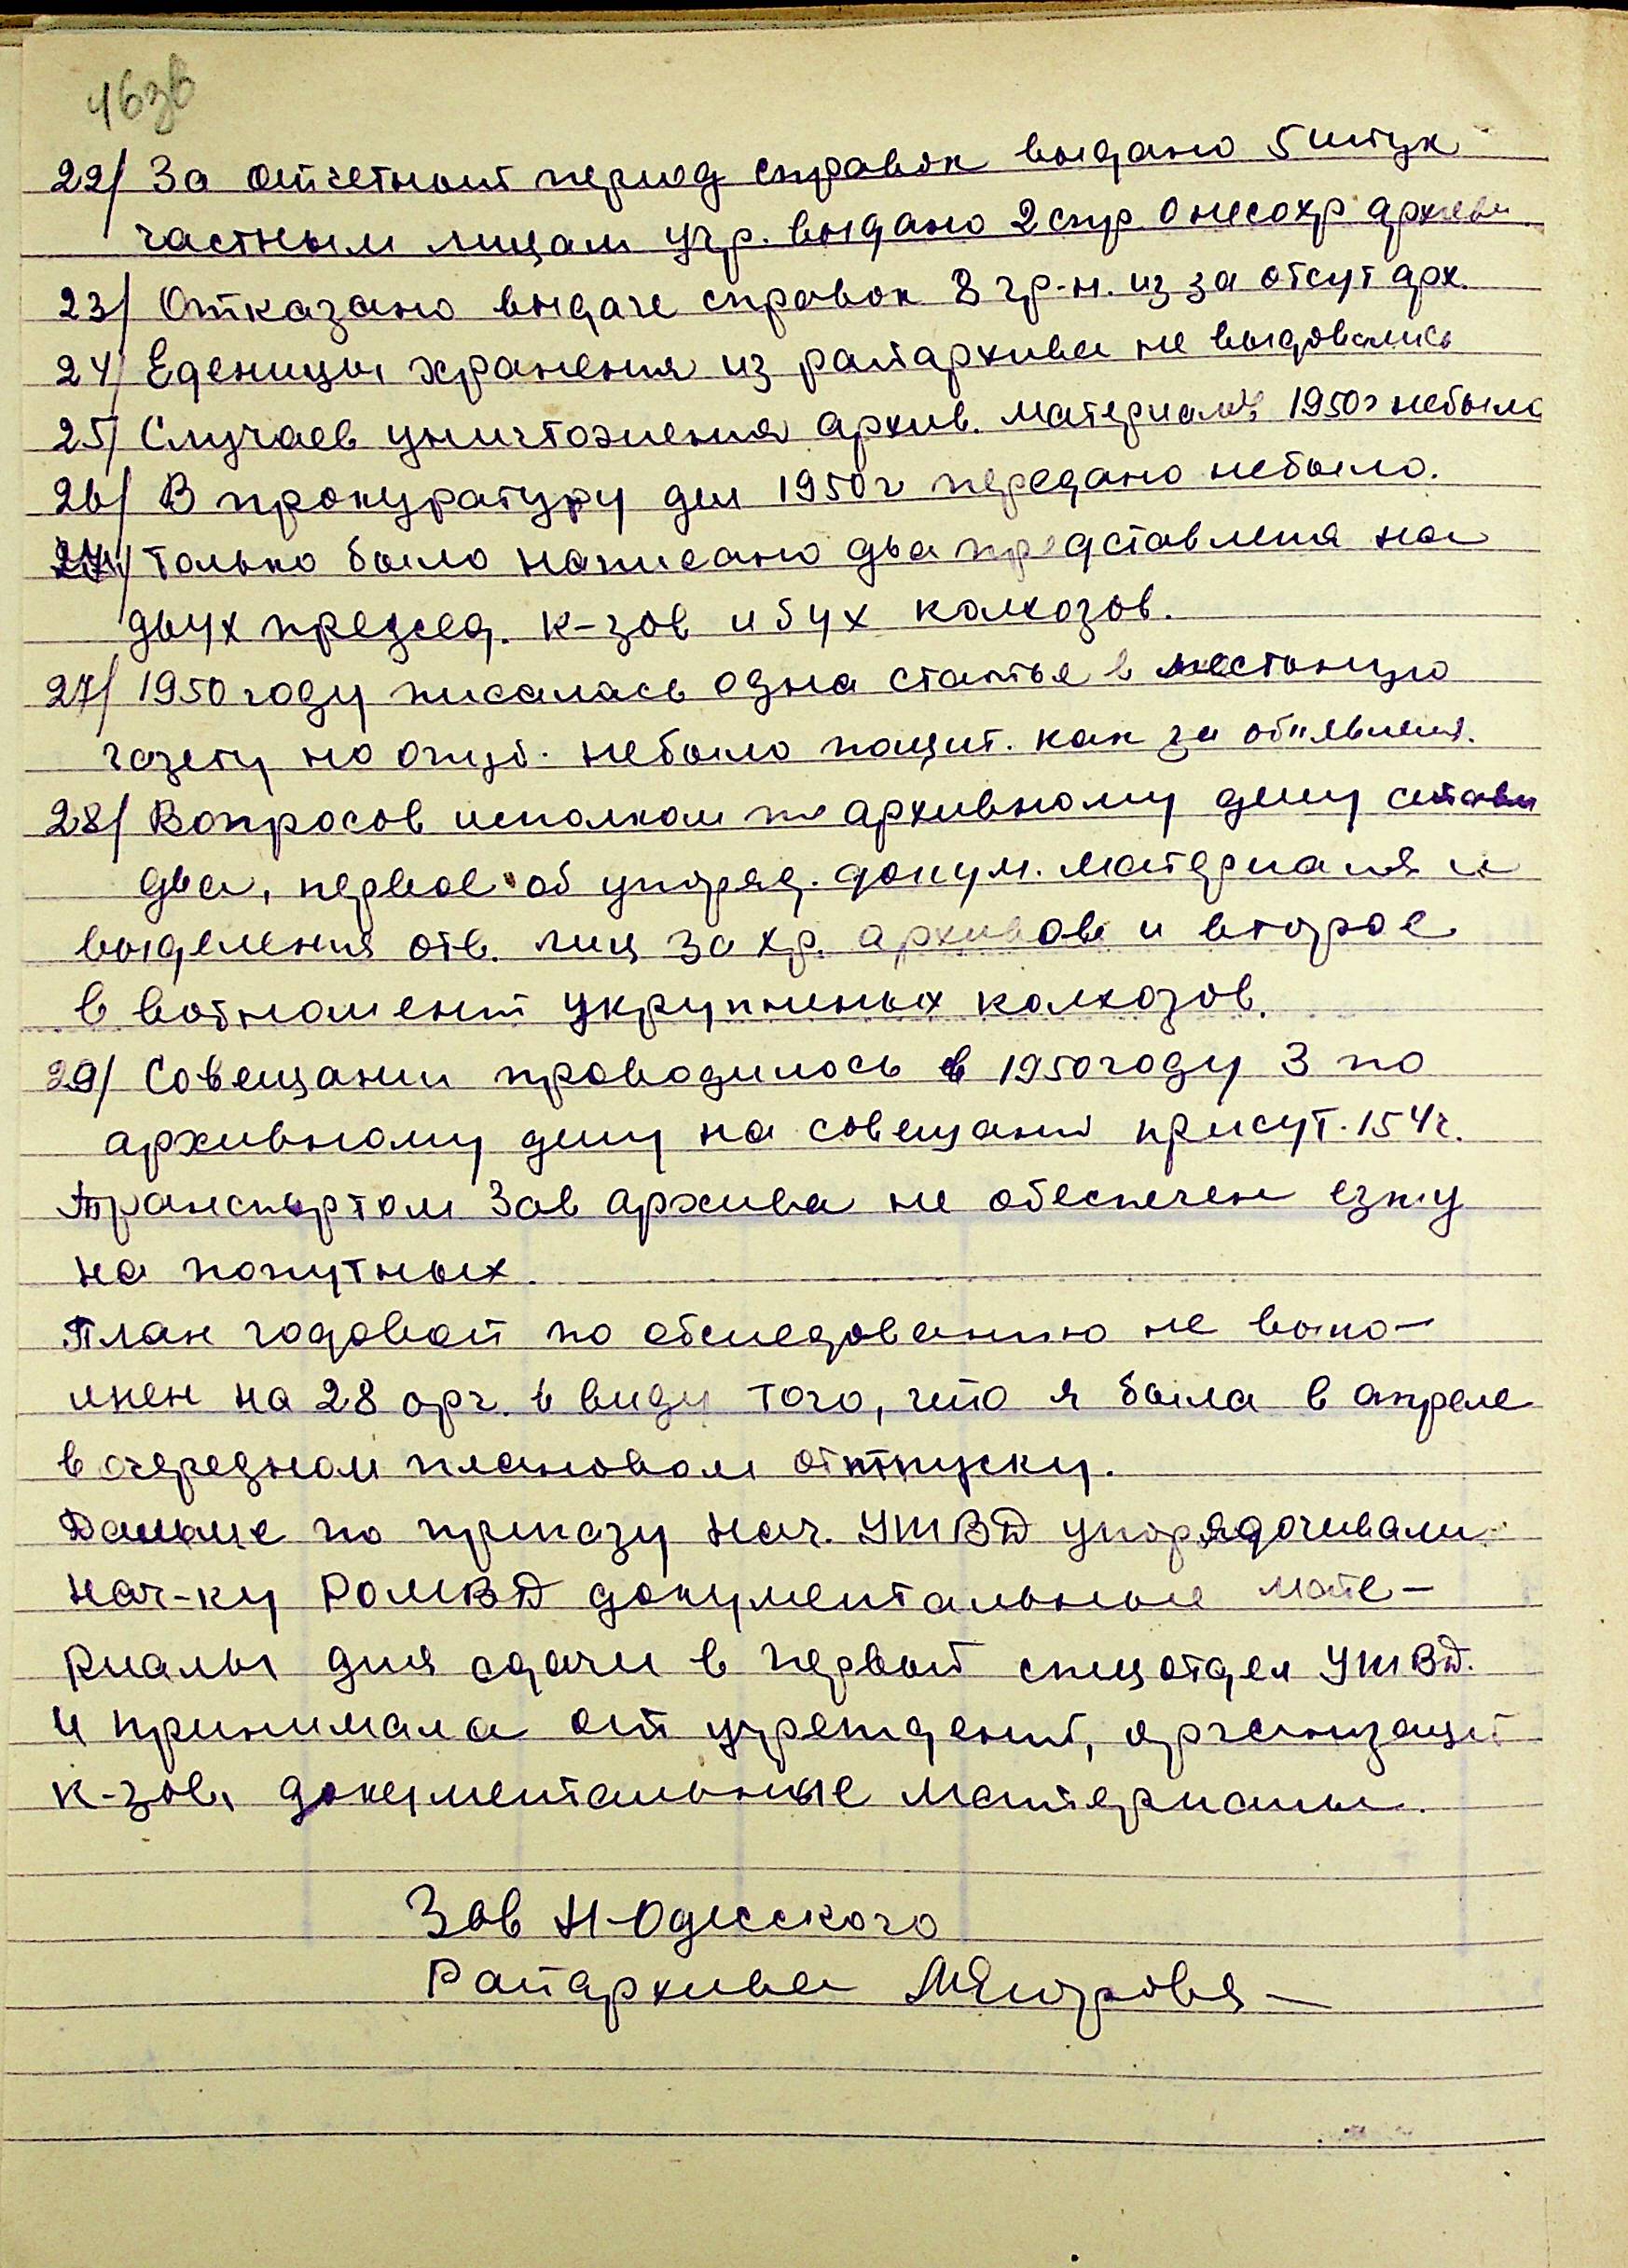 46зв
22/ За отчетный период справок выдано 5 штук
частным лицам учр. выдано 2 спр. о несохр архива
23/ Отказано выдаче справок 8 гр-н. из за отсут арх.
24/ Еденицы хранения из райархива не выдовались
25/ Случаев уничтожения архив. материалов 1950г небыло
26/ В прокуратуру дел 1950г передано небыло.
только было написано два представления на
двух председ. к-зов и бух колхозов.
27/ 1950 году писалась одна статья в местную
газету но опуб. небыло пощит. как за обявления.
28/ Вопросов исполком по архивному делу ставил
два, первое об упоряд. докум. материаля и
выделения отв. лиц за хр. архивов и второе
в вотношений укрупненых колхозов.
29/ Совещании проводилось в 1950 году 3 по
архивному делу на совещаний присут. 154ч.
Транспортом Зав архива не обеспечен езжу
на попутных.
План годовой по обследованию не выпо-
лнен на 28 орг. в виду того, что я была в апреле
в очередном плановом отпуску.
Дальше по приказу нач. УМВД упорядочивали
нач-ку РОМВД документальные мате-
риалы для сдачи в первый спецотдел УМВД.
и принимала от учреждений, организаций
к-зов, документальные материалы.
Зав Н-Одесского
Райархива